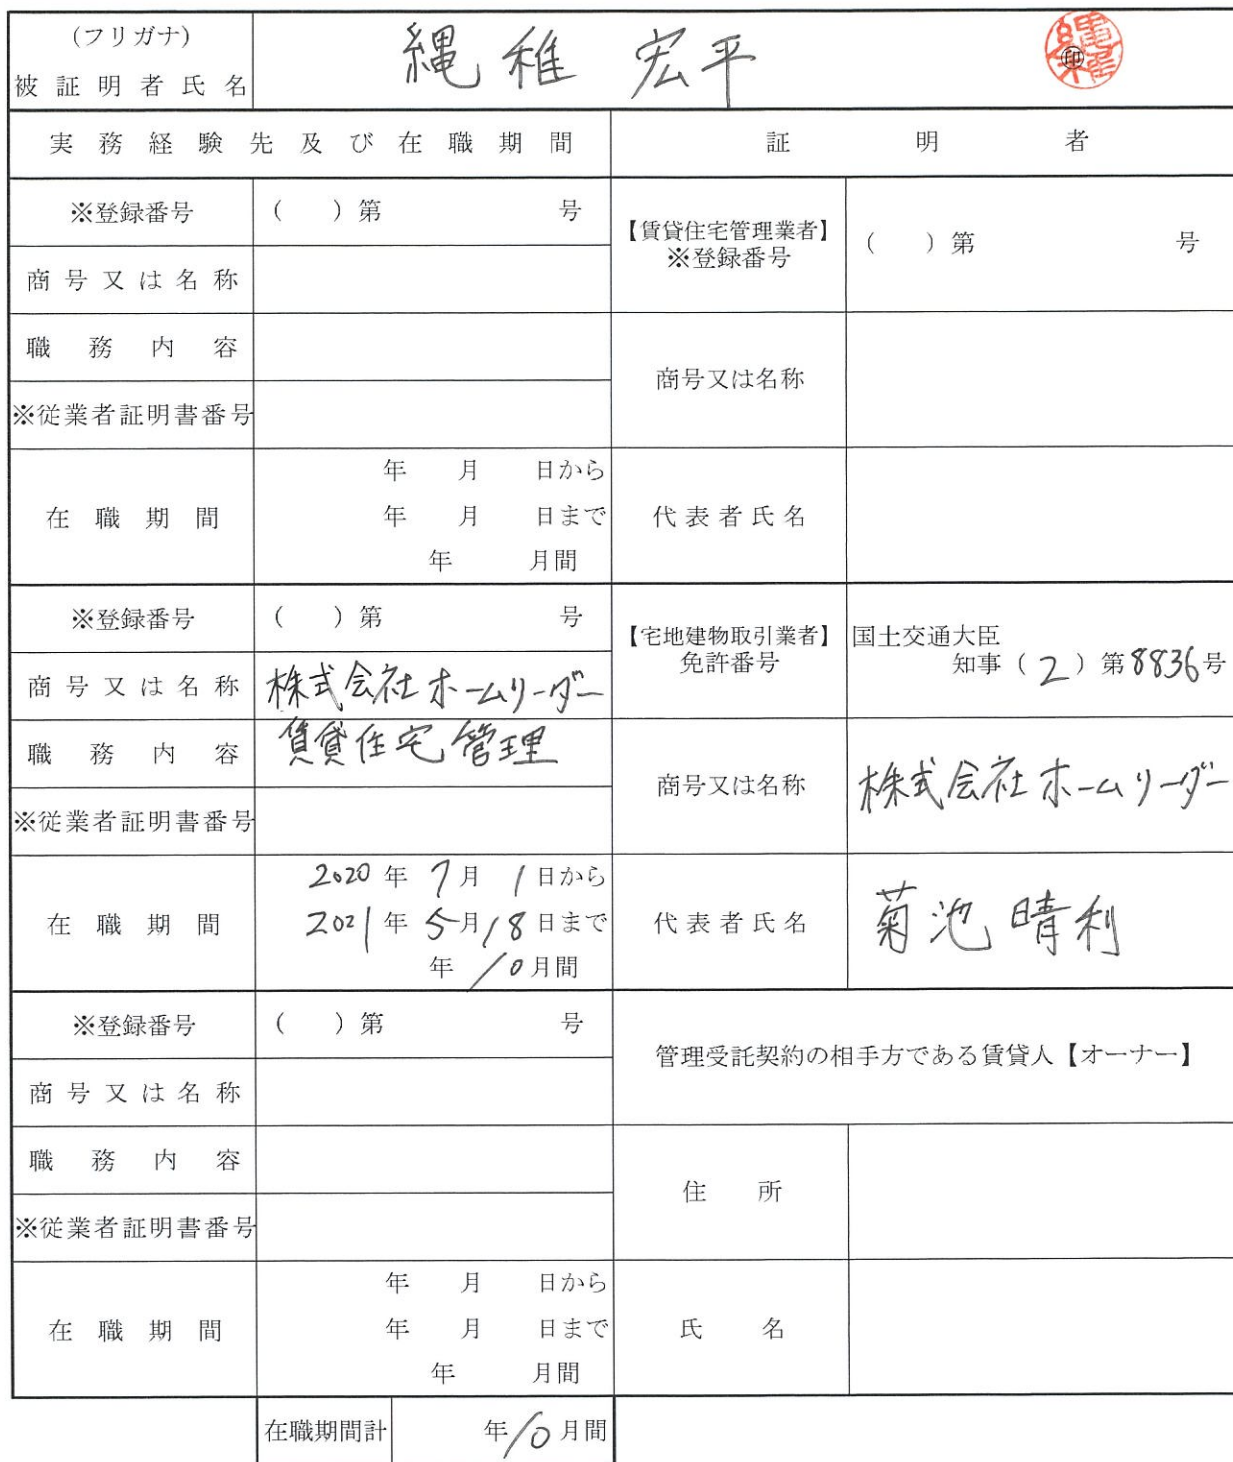 (フリガナ)
被証明者氏名
縄稚 宏平
印
実務経験先及び在職期間
証明者
※登録番号
( )第 号
【賃貸住宅管理業者】
※登録番号
( )第 号
商号又は名称
職務内容
商号又は名称
※従業者証明書番号
在職期間
年 月 日から
年 月 日まで
年 月間
代表者氏名
※登録番号
( )第 号
【宅地建物取引業者】
免許番号
国土交通大臣
知事(2)第8836号
商号又は名称
株式会社ホームリーダー
職務内容
賃貸住宅管理
商号又は名称
株式会社ホームリーダー
※従業者証明書番号
在職期間
2020年 7月 1日から
2021年 5月18日まで
年 10月間
代表者氏名
菊池 晴利
※登録番号
( )第 号
管理受託契約の相手方である賃貸人【オーナー】
商号又は名称
職務内容
住所
※従業者証明書番号
在職期間
年 月 日から
年 月 日まで
年 月間
氏名
在職期間計
年10月間